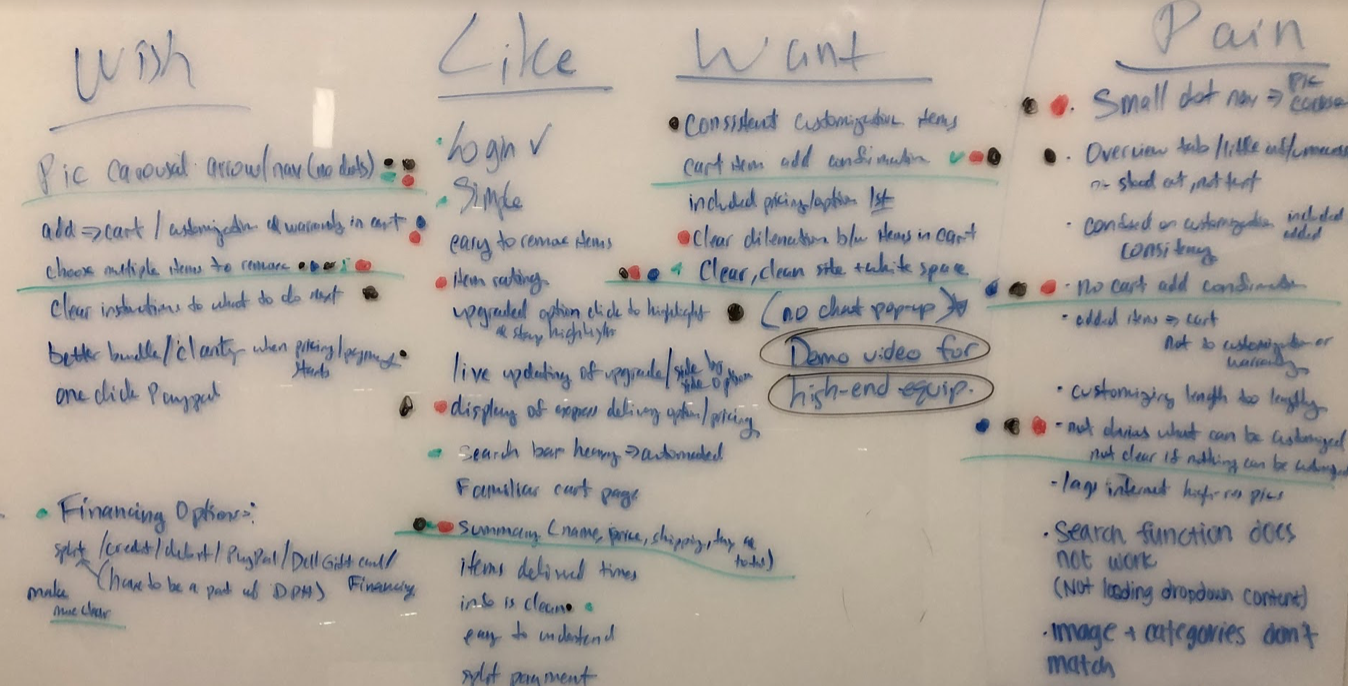 Wish
Pic carousal arrow/nav (no dots)
add => cart / customization & warranty in cart
choose multiple items to remove
clear instructions to what to do next
better bundle/clarity when pricing/payment
starts
one click Paypal
Financing Options:
split /credit/debit/PayPal/Dell Gift card/
(have to be a part of DPA) Financing
make
more clear
Like
Login ✓
Simple
easy to remove items
item rating
upgraded option click to highlight
& stays highlight
live updating of upgrade/side by
side option
display of express delivery option/pricing
Search bar => automated
Familiar cart page
summary (name, price, shipping, tax &
total)
items delivered times
info is clean
easy to understand
split payment
Want
Consistent customization items
cart item add confirmation
included pricing/option 1st
Clear dilenation b/w items in cart
Clear, clean site + white space
(no chat popup)
Demo video for
high-end equip.
Pain
Small dot nav => Pic
Overview tab/little
stood out, not text
confused on customization included
added
consistency
no cart add confirmation
added items => cart
not so customization or
warranty
customizing length too lengthy
not obvious what can be customized
not clear if nothing can be customized
lags internet high-res pics
Search function does
not work
(Not loading dropdown content)
Image + categories don't
match